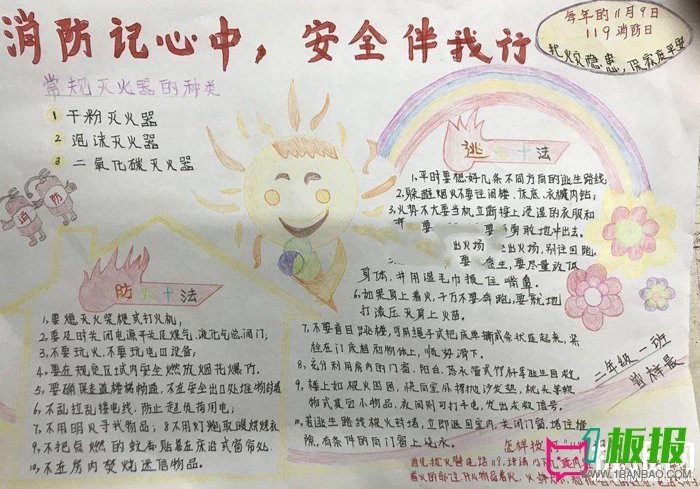 消防记心中，安全伴我行
每年的11月9日
119消防日
找火灾隐患，保家庭平安
常规灭火器的种类
1 干粉灭火器
2 泡沫灭火器
3 二氧化碳灭火器
消 防
逃 十法
1、平时要想好几条不同方向的逃生路线
2、躲避烟火不要往阁楼、床底、衣橱内钻
3、火势不大要当机立断披上浸湿的衣服和
要 要勇敢地冲出去。
出火场 出火场，别往回跑
要 要尽量放低
身体，并用湿毛巾捂住嘴鼻
6、如果身上着火，千万不要奔跑，要就地
打滚压灭身上火苗
7、不要盲目跳楼，可用绳子或把床单撕成条状连起来，紧
栓在门底 物体上，慢慢滑下。
8、充分利用房内的门窗、阳台、 水管或竹竿等逃生自救
9、楼上如被火围困，快向室外 抛沙发垫、枕头等软
物或其它小物品，夜间则可打手电，发出求救信号。
10、若逃生路线被火封堵，立即返回室内，关闭门窗，堵住缝
隙，有条件的向门窗上浇水。
防火十法
1、要 灭火装 式打火机；
2、要及时关闭电源开关及煤气、液化气总阀门；
3、不要玩火，不要玩电 设备；
4、要在规定区域内安全燃放烟花爆竹。
5、要确保走道楼梯畅通，不在安全出口处堆物封堵
6、不乱拉乱接电线，防止超负荷用电；
7、不用明火寻找物品；8不用灯炮取暖烘烤衣
9、不把点燃的蚊香贴靠在床边或窗帘处
10、不在房内焚烧迷信物品。
二年级一班
曾梓晨
怎样拨
首先拨火警电话119，
1板报
WWW.1BANBAO.COM